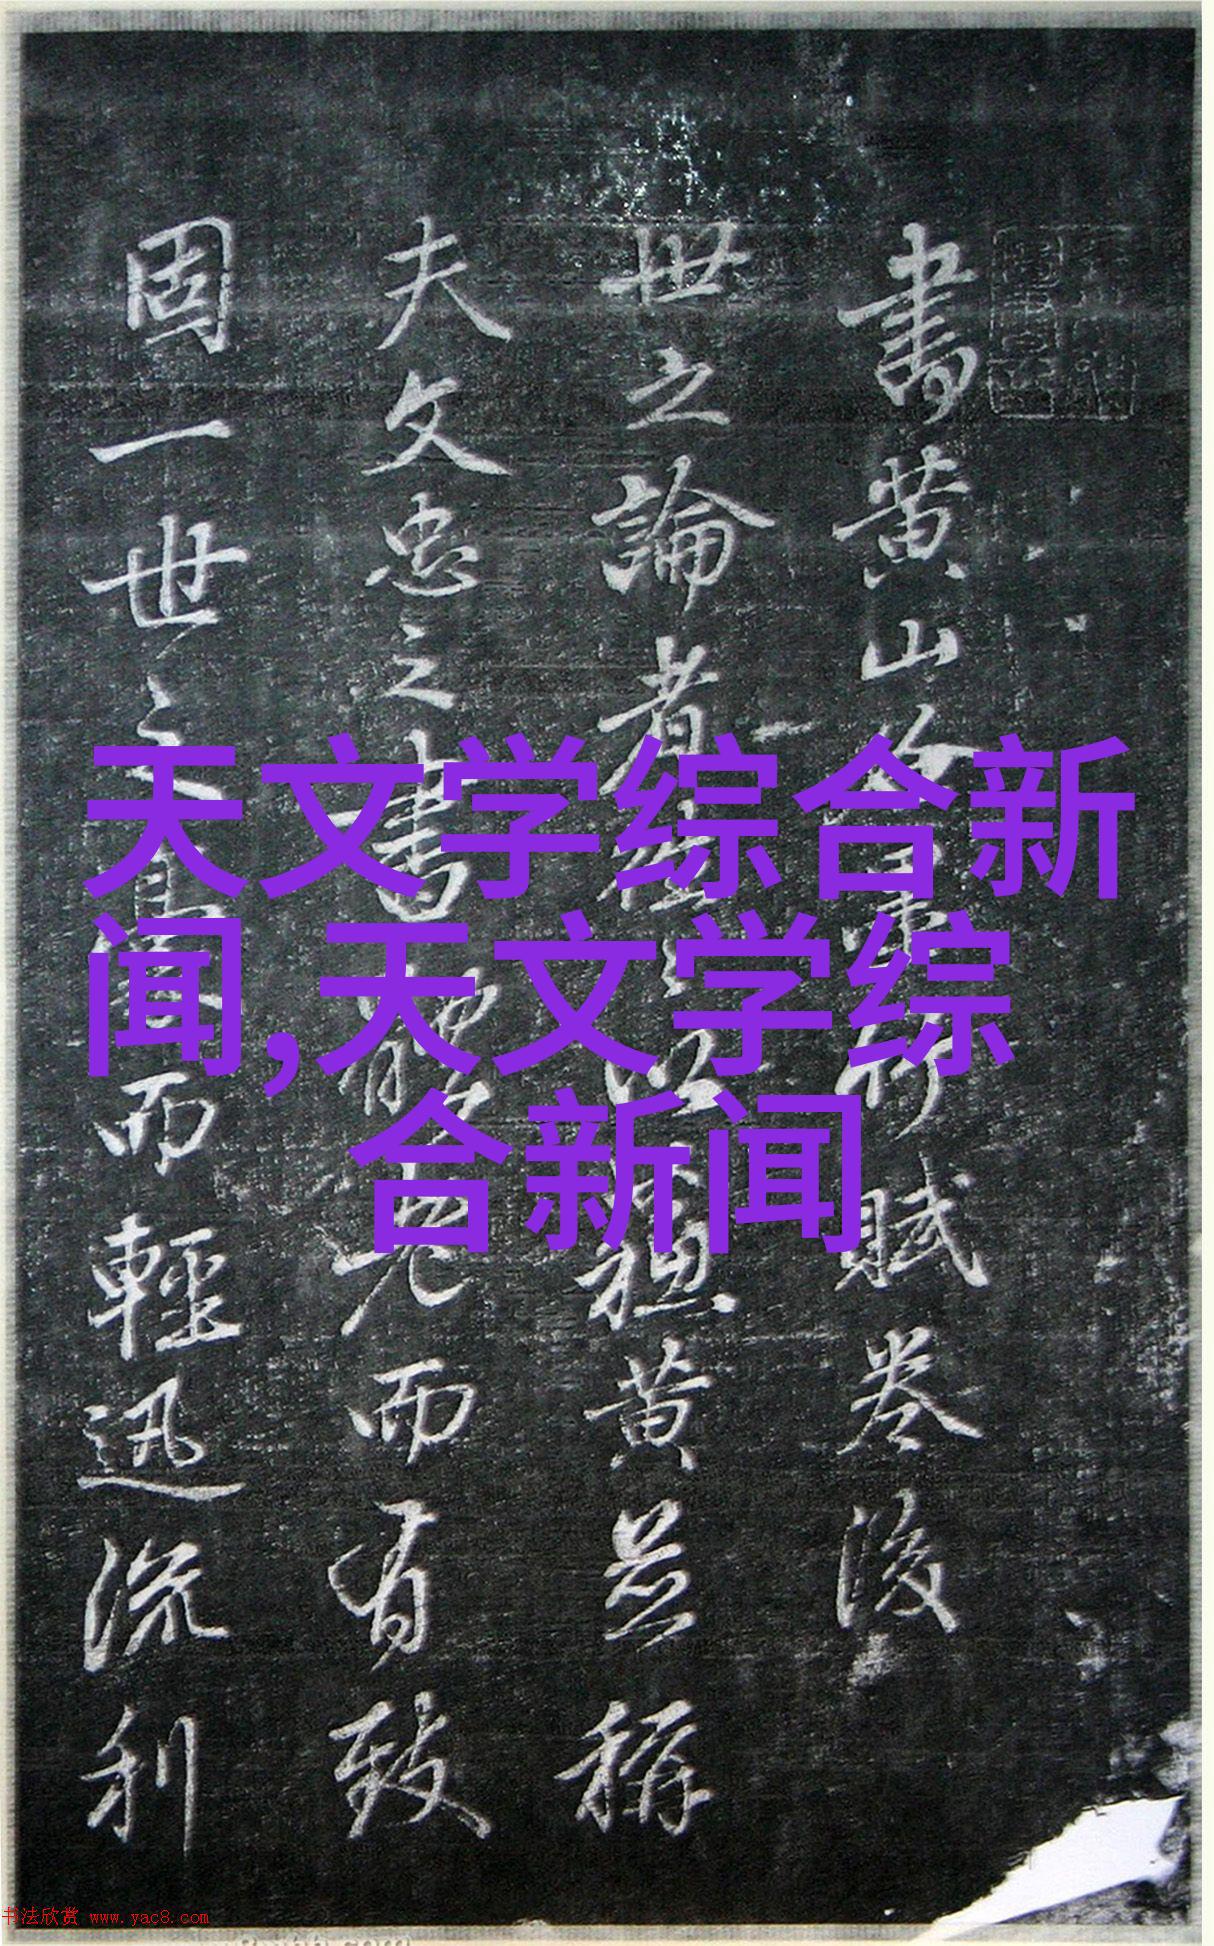 書黃山谷
賦卷後
世之論者
以
黃並稱
夫文忠之書
而有致
固一世之
而輕迅流利
天文学综合新
闻,天文学综
合新闻
书法欣赏 www.yac8.com